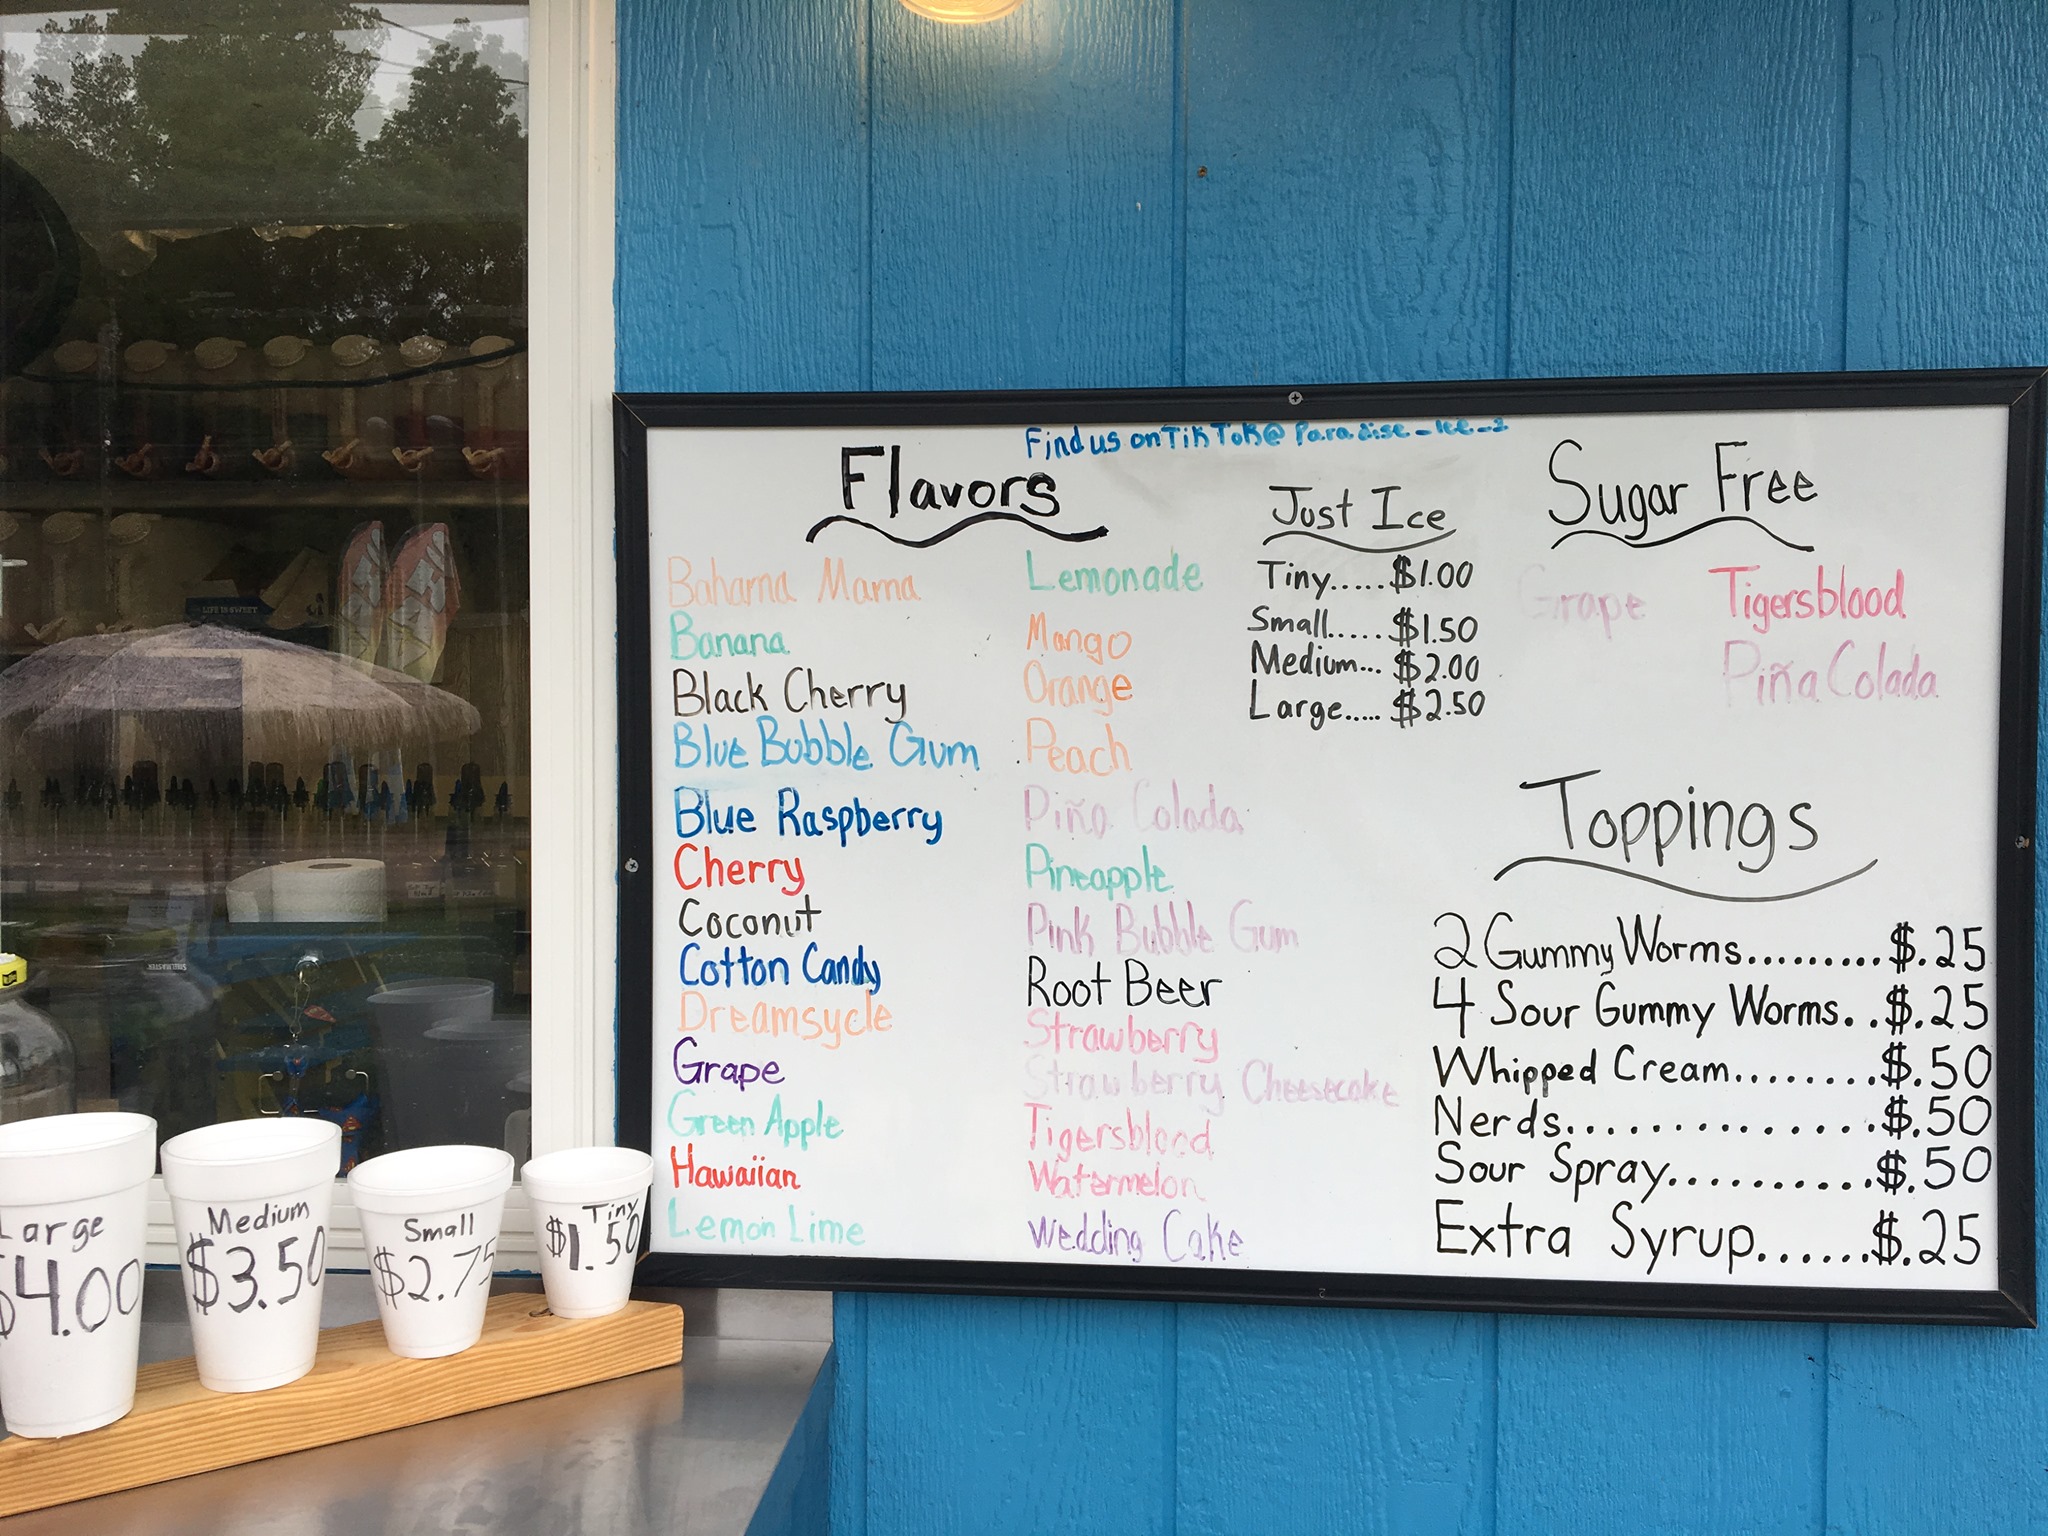 Find us on TikTok@ Paradise_Ice_1
Flavors
Bahama Mama
Banana
Black Cherry
Blue Bubble Gum
Blue Raspberry
Cherry
Coconut
Cotton Candy
Dreamsycle
Grape
Green Apple
Hawaiian
Lemon Lime
Lemonade
Mango
Orange
Peach
Piña Colada
Pineapple
Pink Bubble Gum
Root Beer
Strawberry
Strawberry Cheesecake
Tigersblood
Watermelon
Wedding Cake
Just Ice
Tiny.....$1.00
Small.....$1.50
Medium...$2.00
Large.....$2.50
Sugar Free
Grape
Tigersblood
Piña Colada
Toppings
2 Gummy Worms.........$.25
4 Sour Gummy Worms...$.25
Whipped Cream........$.50
Nerds..............$.50
Sour Spray..........$.50
Extra Syrup......$.25
Large
$4.00
Medium
$3.50
Small
$2.75
Tiny
$1.50
LIFE IS SWEET